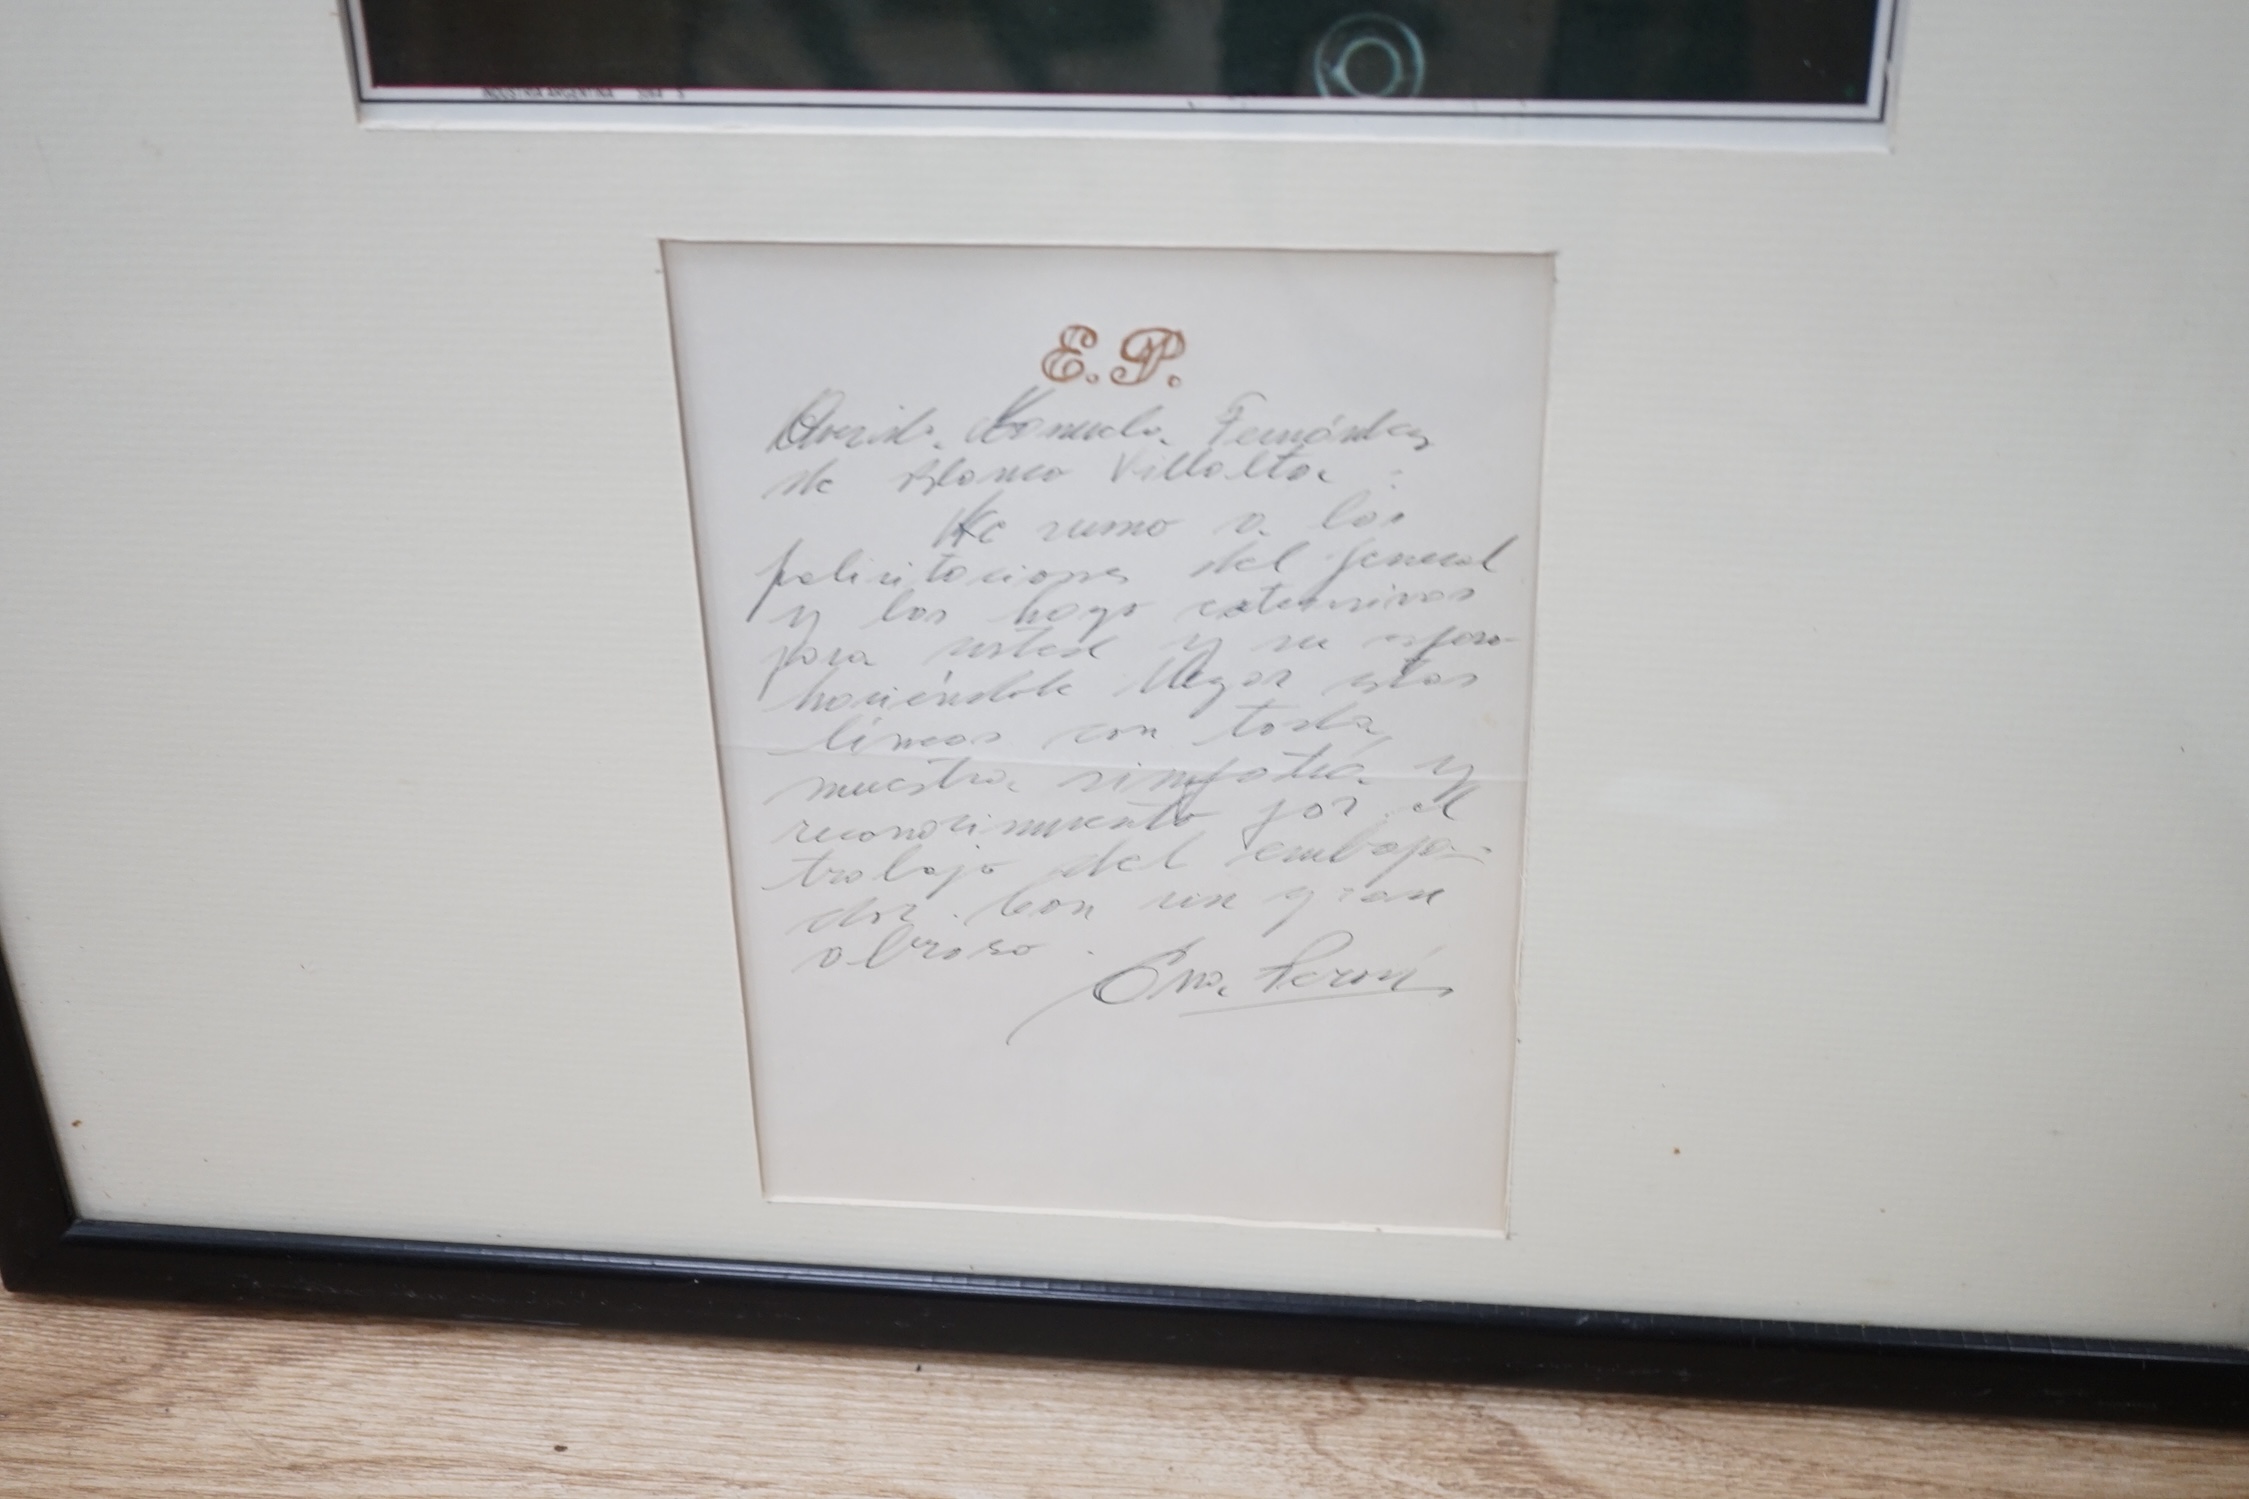 INDUSTRIA ARGENTINA
E.P.
Querida Fernández
de Blanco Villalta:
Me sumo a las
felicitaciones del general
y las hago extensivas
para usted y su esposo
haciéndole llegar estas
líneas con toda
nuestra simpatía y
reconocimiento por el
trabajo del embaja-
dor. Con un gran
abrazo.
Eva Perón